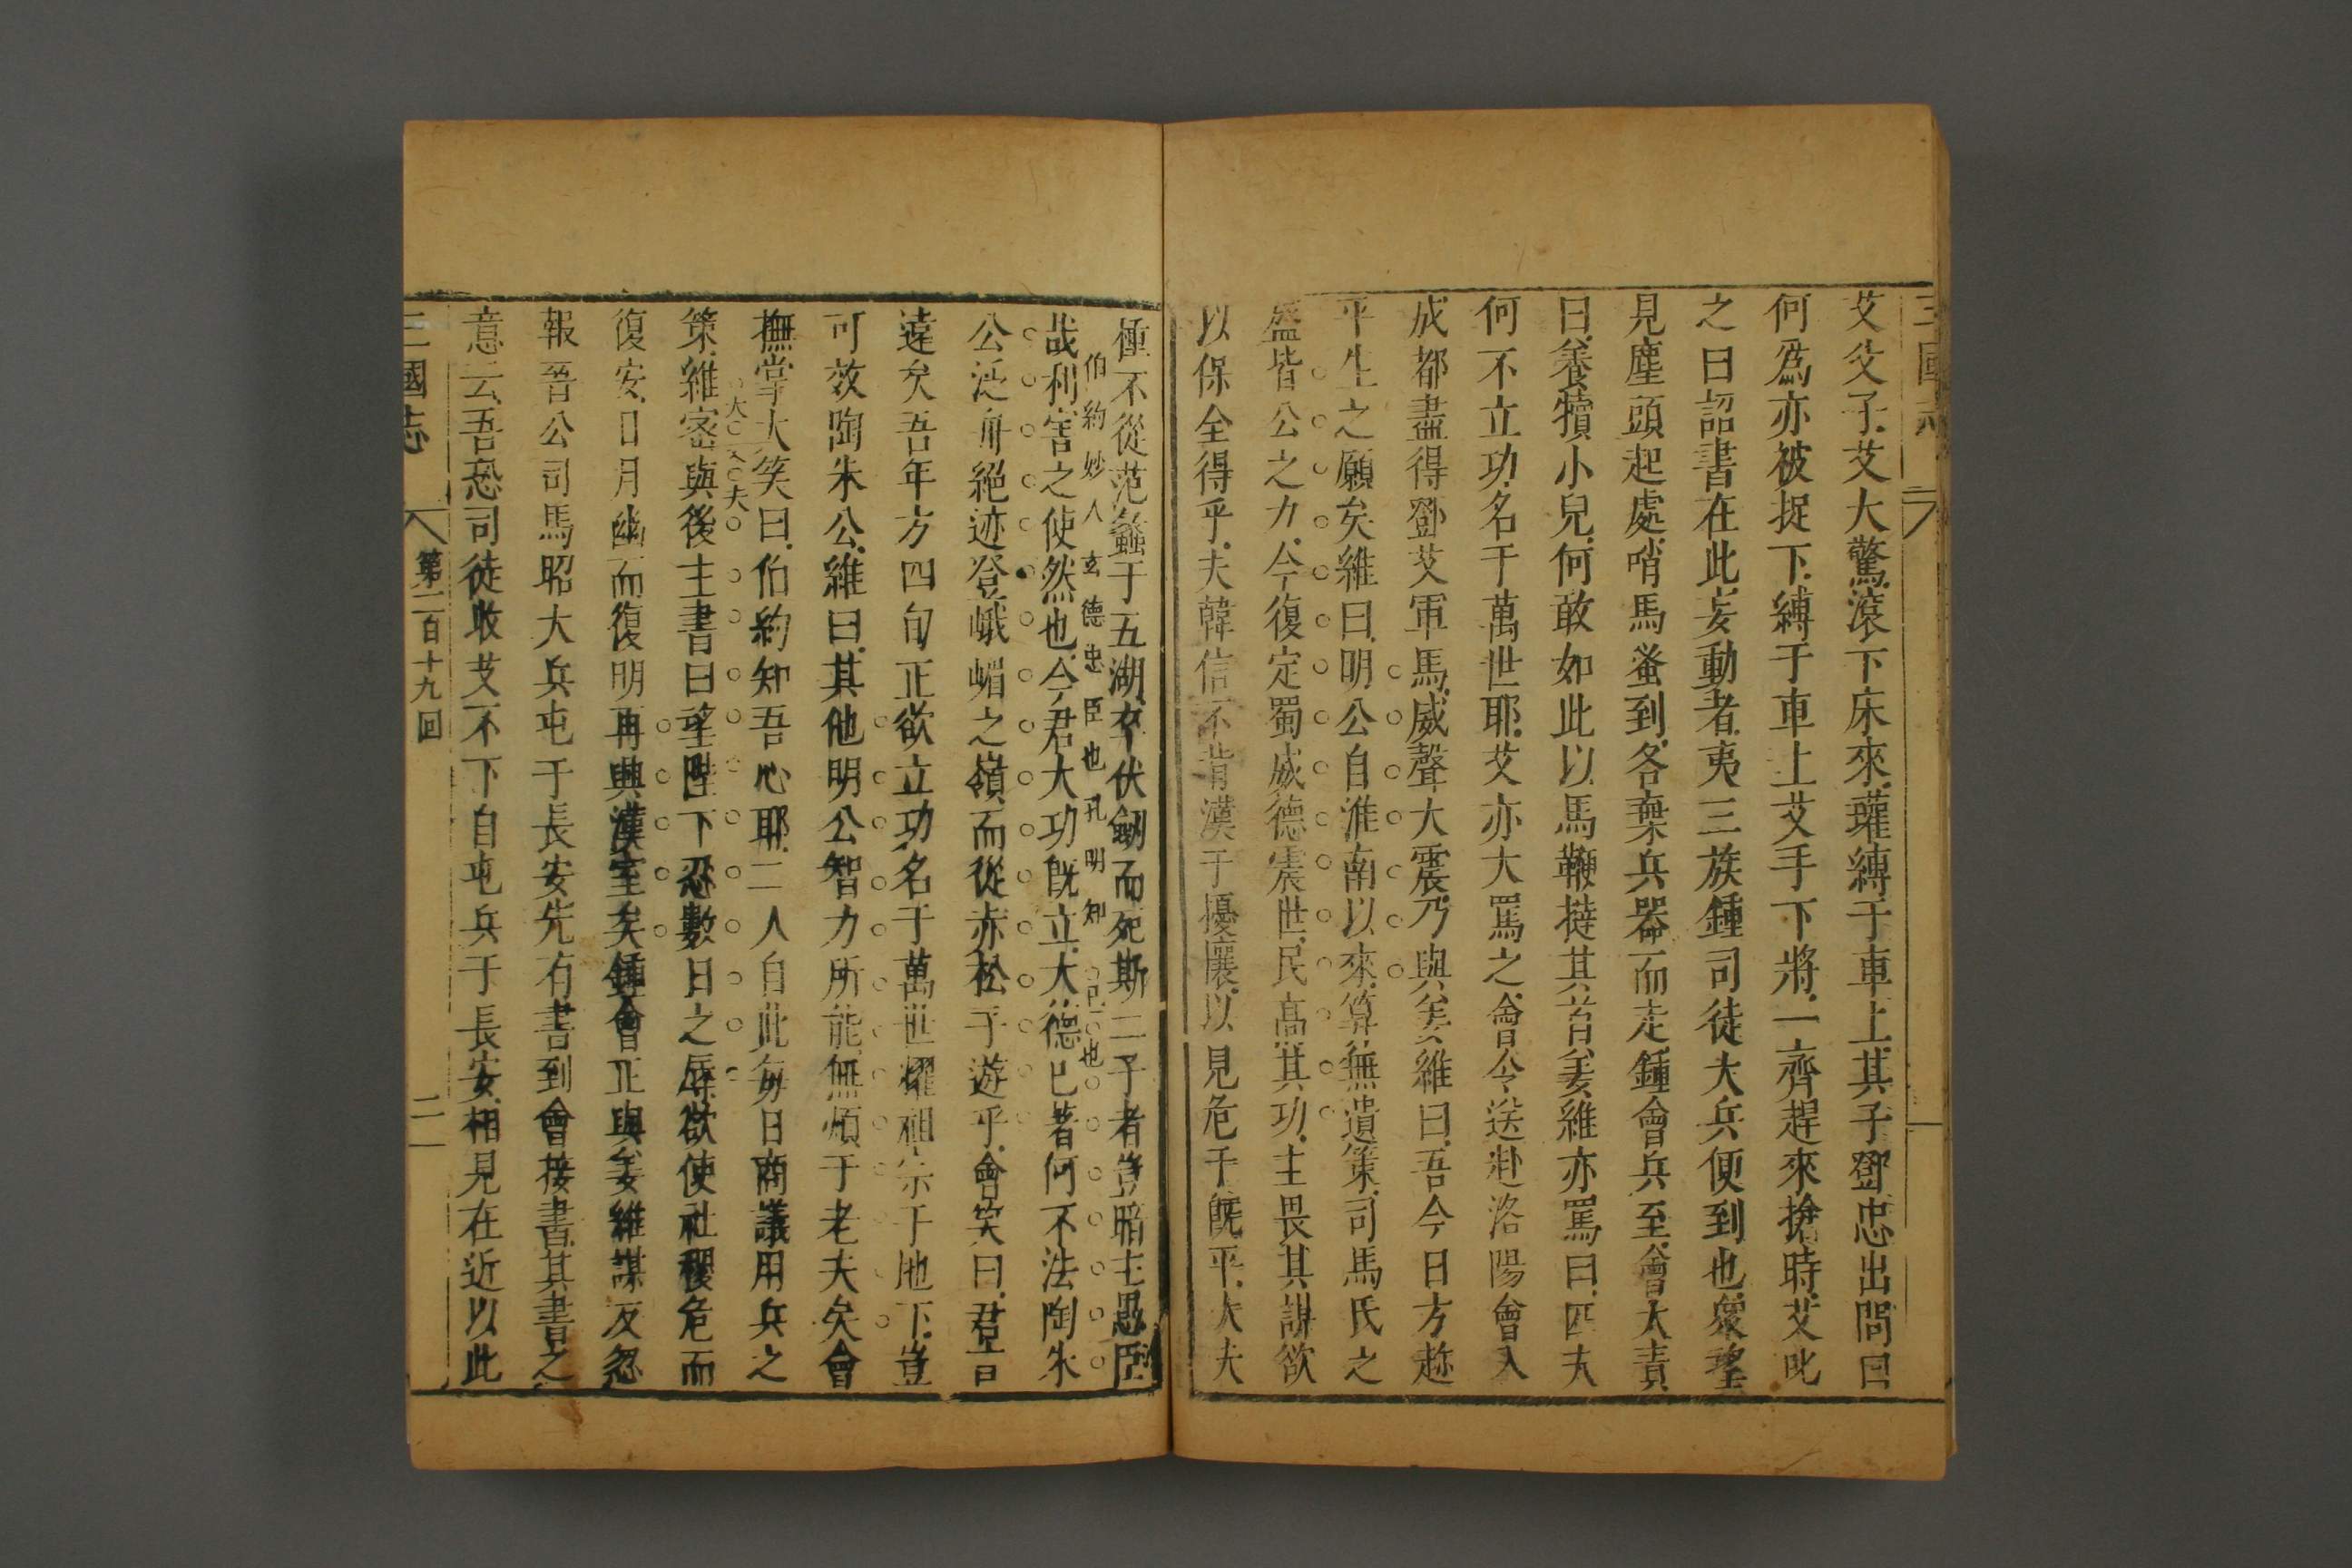 艾父子艾大驚滾下床來瓘縛于車上其子鄧忠出問曰
何爲亦被捉下縛于車上艾手下將一齊趕來搶時艾叱
之曰詔書在此妄動者夷三族鍾司徒大兵便到也衆望
見塵頭起處哨馬蚤到各棄兵器而走鍾會兵至會大責
曰養犢小兒何敢如此以馬鞭撻其首姜維亦罵曰匹夫
何不立功名于萬世耶艾亦大罵之會令送赴洛陽會入
成都盡得鄧艾軍馬威聲大震乃與姜維曰吾今日方趂
平生之願矣維曰明公自淮南以來算無遺策司馬氏之
盛皆公之力今復定蜀威德震世民高其功主畏其謀欲
以保全得乎夫韓信不背漢于擾攘以見危于旣平大夫
種不從范蠡于五湖卒伏劒而死斯二子者豈暗主愚臣
伯約妙人玄德忠臣也孔明知己也
哉利害之使然也今君大功旣立大德已著何不法陶朱
公泛舟絕迹登峨嵋之嶺而從赤松子遊乎會笑曰君言
遠矣吾年方四旬正欲立功名于萬世耀祖宗于地下豈
可效陶朱公維曰其他明公智力所能無煩于老夫矣會
撫掌大笑曰伯約知吾心耶二人自此每日商議用兵之
大丈夫
策維密與後主書曰望陛下忍數日之辱欲使社稷危而
復安日月幽而復明再興漢室矣鍾會正與姜維謀反忽
報晉公司馬昭大兵屯于長安先有書到會接書其書之
意云吾恐司徒收艾不下自屯兵于長安相見在近以此
三國志 第一百十九回 二